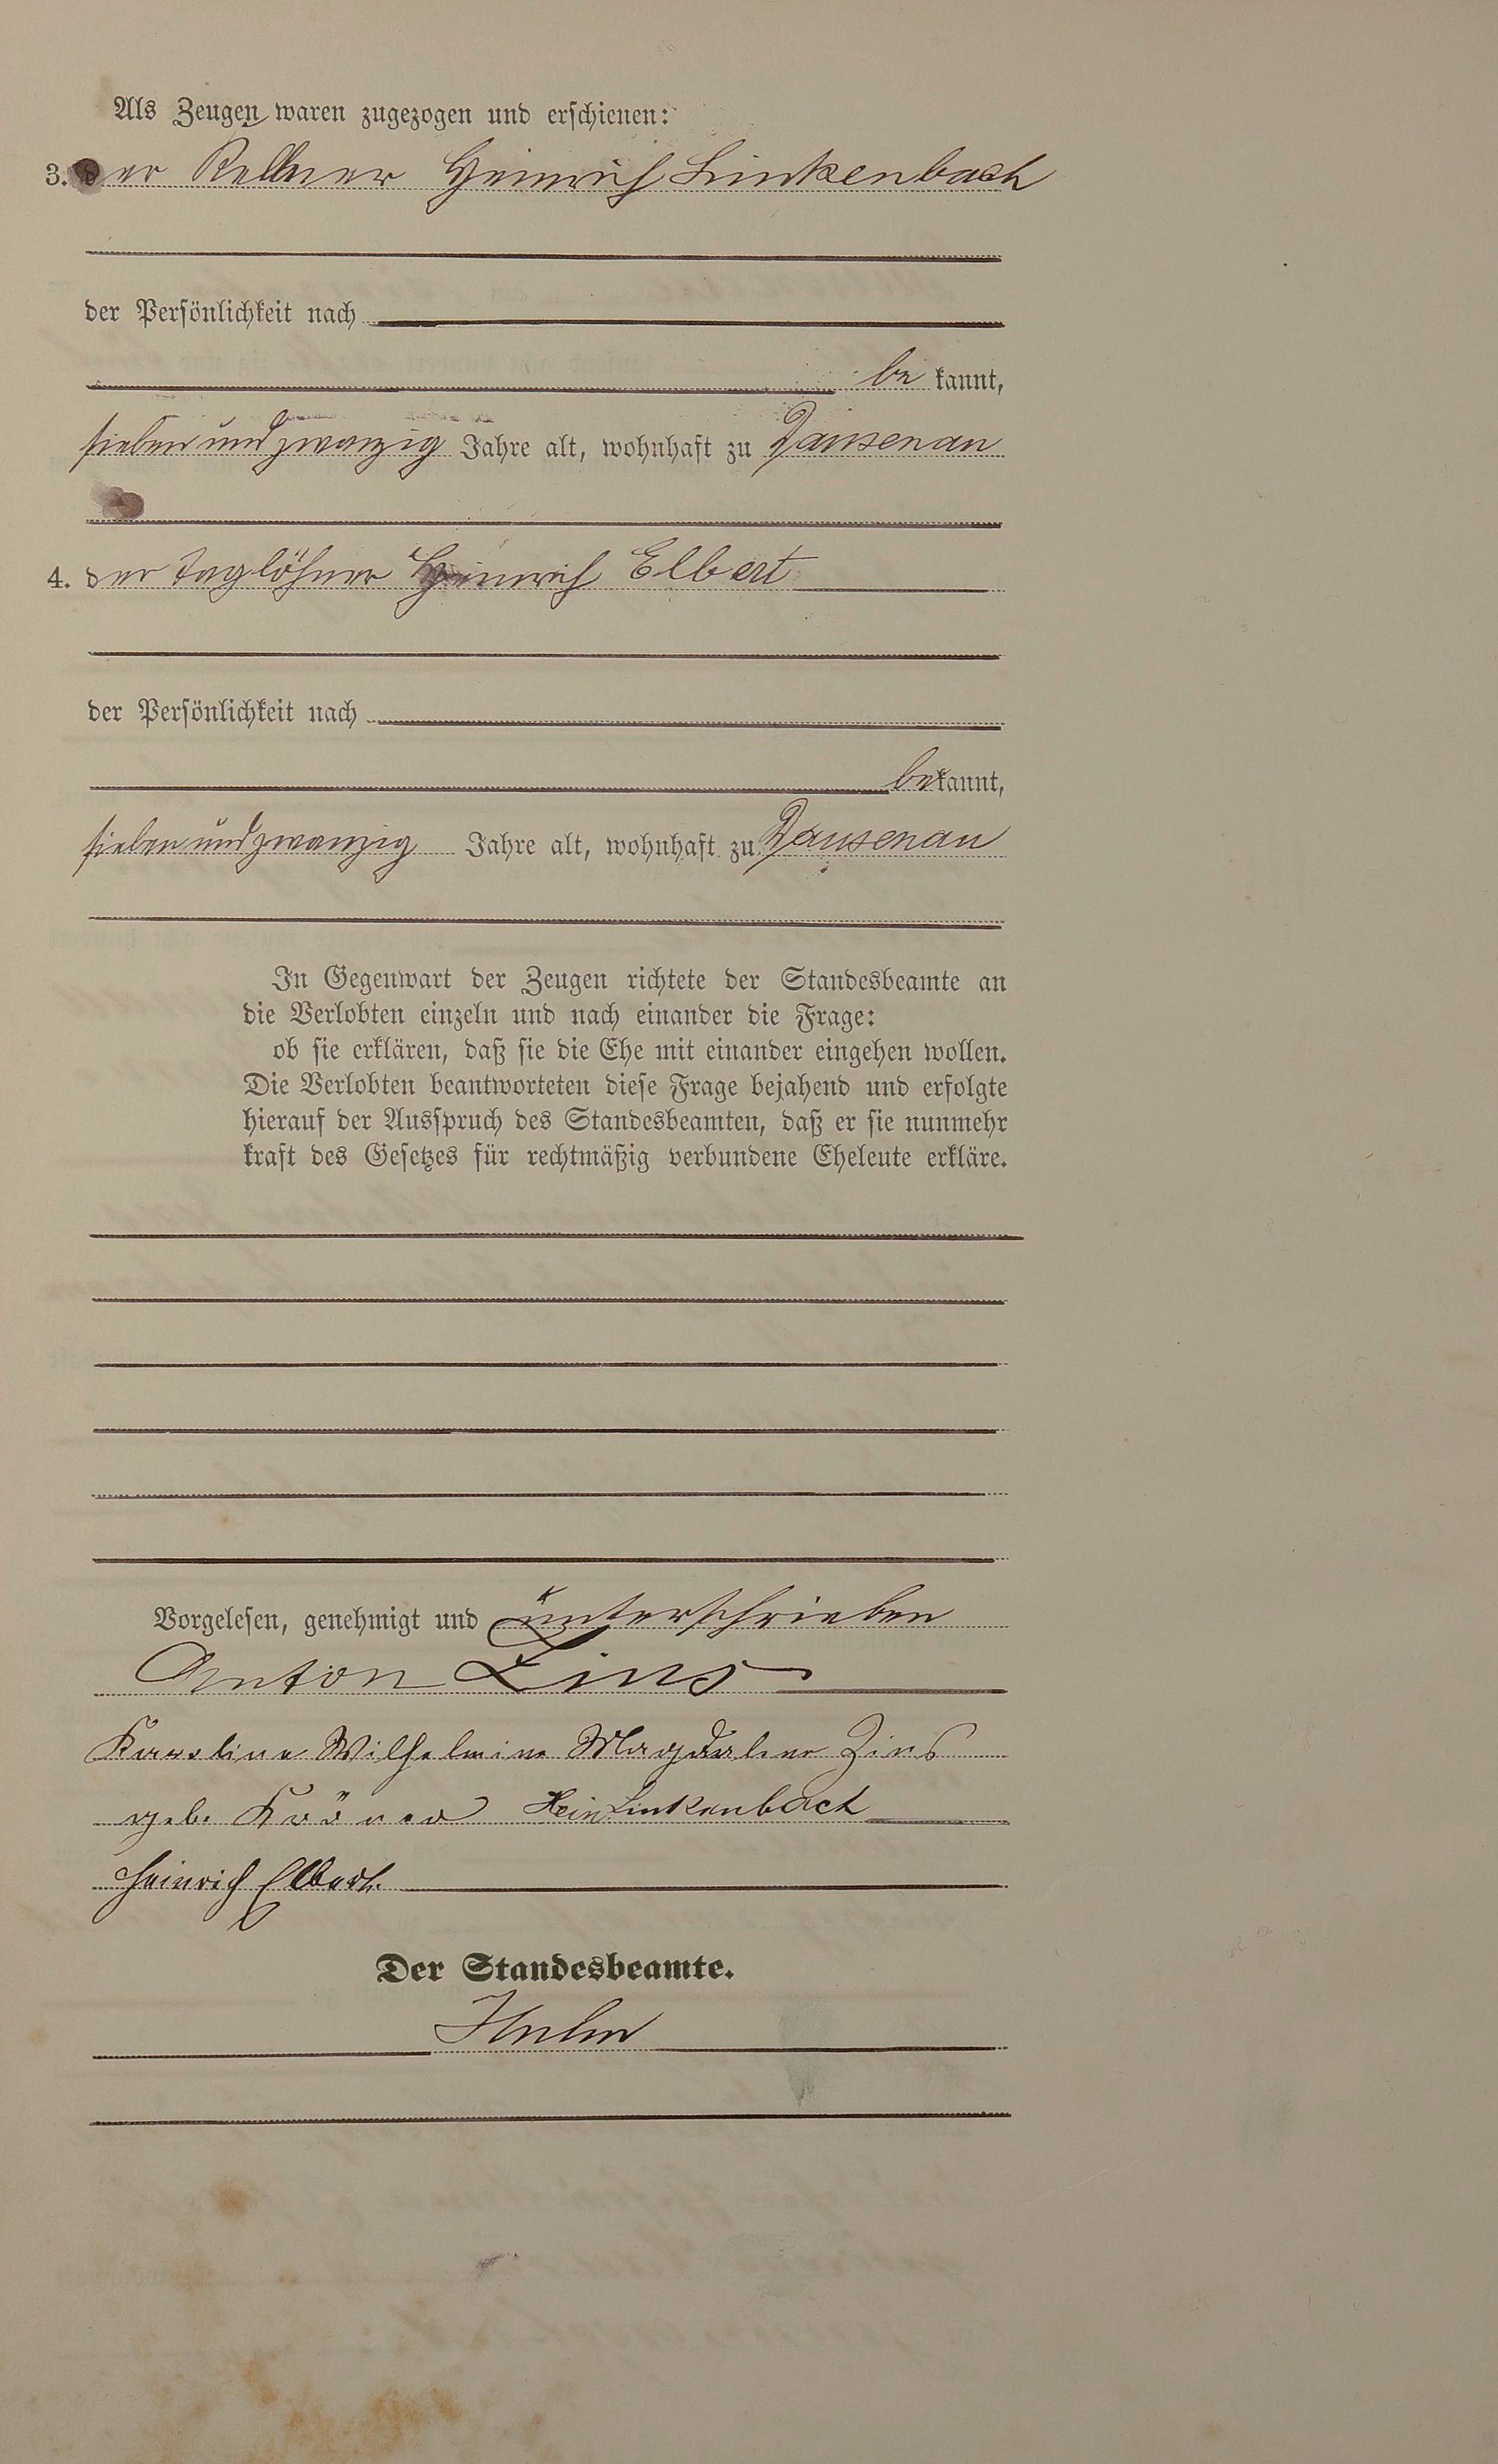 Als Zeugen waren zugezogen und erschienen:
3. der Kellner Heinrich Linkenbach
der Persönlichkeit nach
be kannt,
siebenundzwanzig Jahre alt, wohnhaft zu Dausenau
4. der Taglöhner Heinrich Elbert
der Persönlichkeit nach
bekannt,
siebenundzwanzig Jahre alt, wohnhaft zu Dausenau
In Gegenwart der Zeugen richtete der Standesbeamte an
die Verlobten einzeln und nach einander die Frage:
ob sie erklären, daß sie die Ehe mit einander eingehen wollen.
Die Verlobten beantworteten diese Frage bejahend und erfolgte
hierauf der Ausspruch des Standesbeamten, daß er sie nunmehr
kraft des Gesetzes für rechtmäßig verbundene Eheleute erkläre.
Vorgelesen, genehmigt und unterschrieben
Anton Zins
Karoline Wilhelmine Magdalene Zins
geb. Kröner Hein Linkenbach
Heinrich Elbert.
Der Standesbeamte.